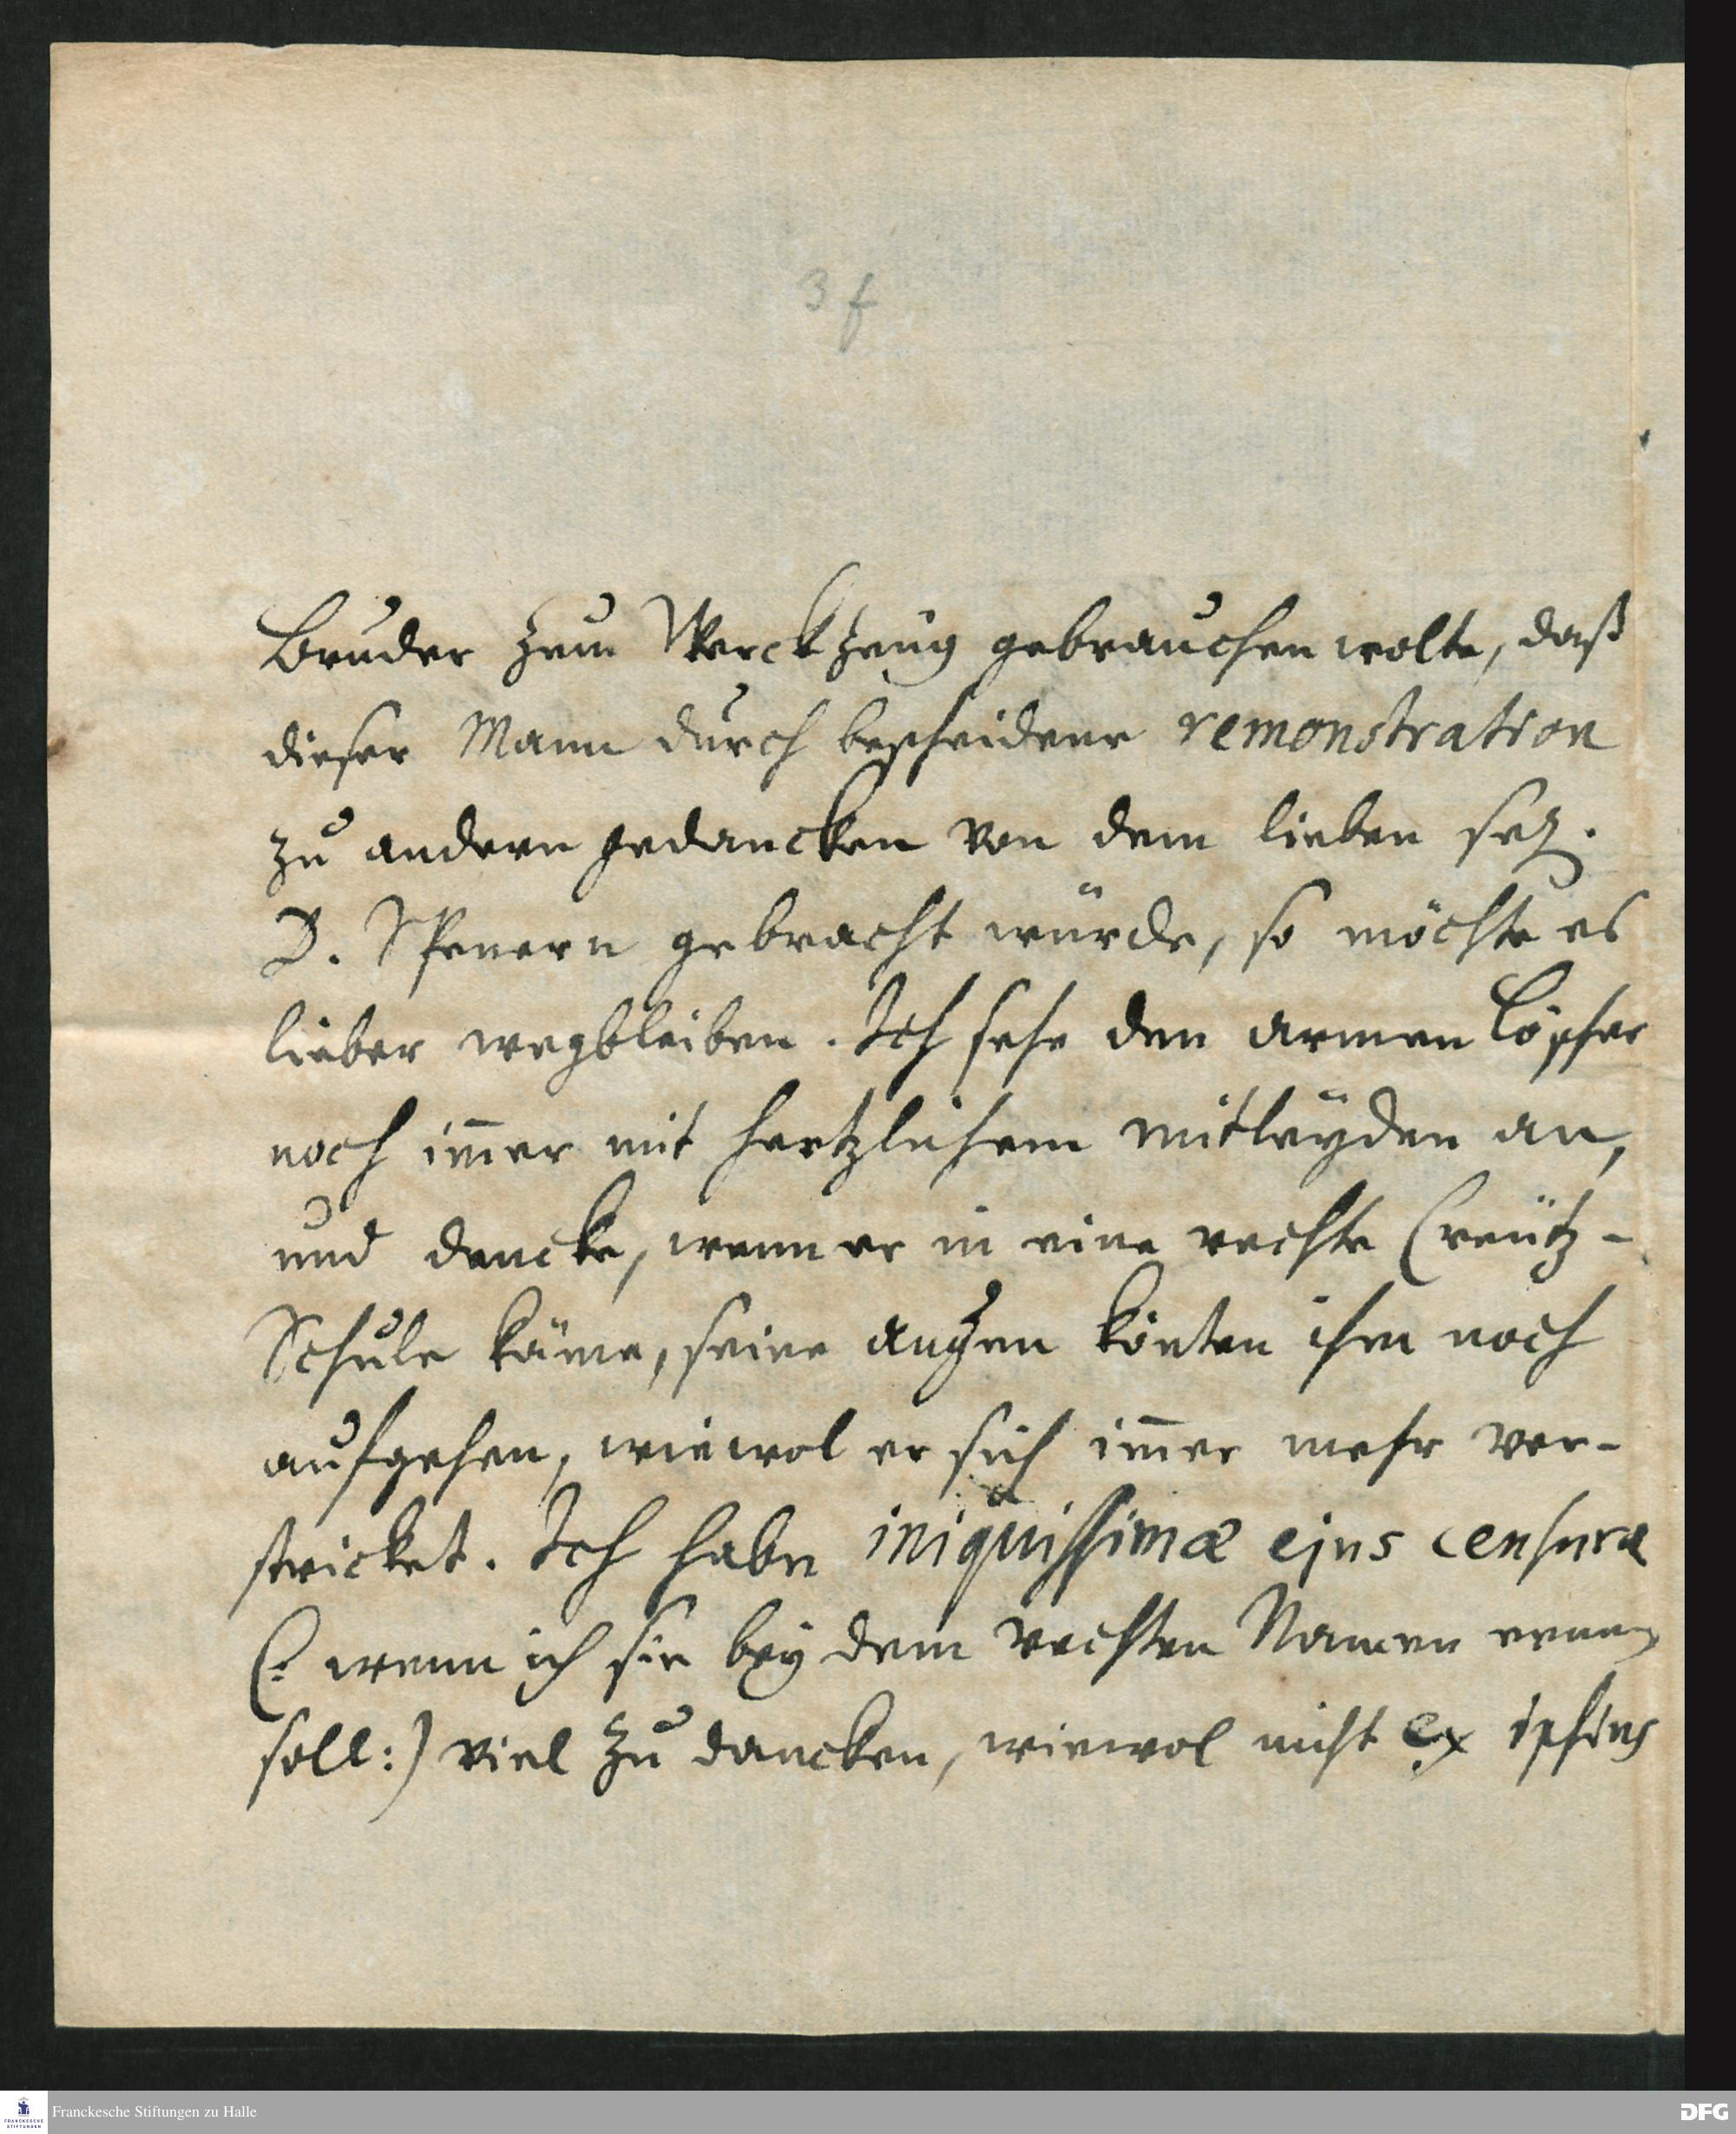 3 f
Bruder zum Werckzeug gebrauchen wolte, daß
dieser Mann durch bescheidene remonstration
zu andern gedancken von dem lieben sel.
D. Spenern gebracht würde, so möchte es
lieber wegbleiben. Ich sehe den armen Töpfer
noch im̄er mit hertzlichem mitleyden an,
und dencke, wenn er in eine rechte Creütz-
Schule käme, seine augen könten ihm noch
aufgehen, wiewol er sich im̄er mehr ver-
stricket. Ich habe iniquissimæ ejus censuræ
(: wenn ich sie bey dem rechten Namen nennen
soll:) viel zu dancken, wiewol nicht ex ipsius
Franckesche Stiftungen zu Halle
FRANCKESCHE
STIFTUNGEN
DFG